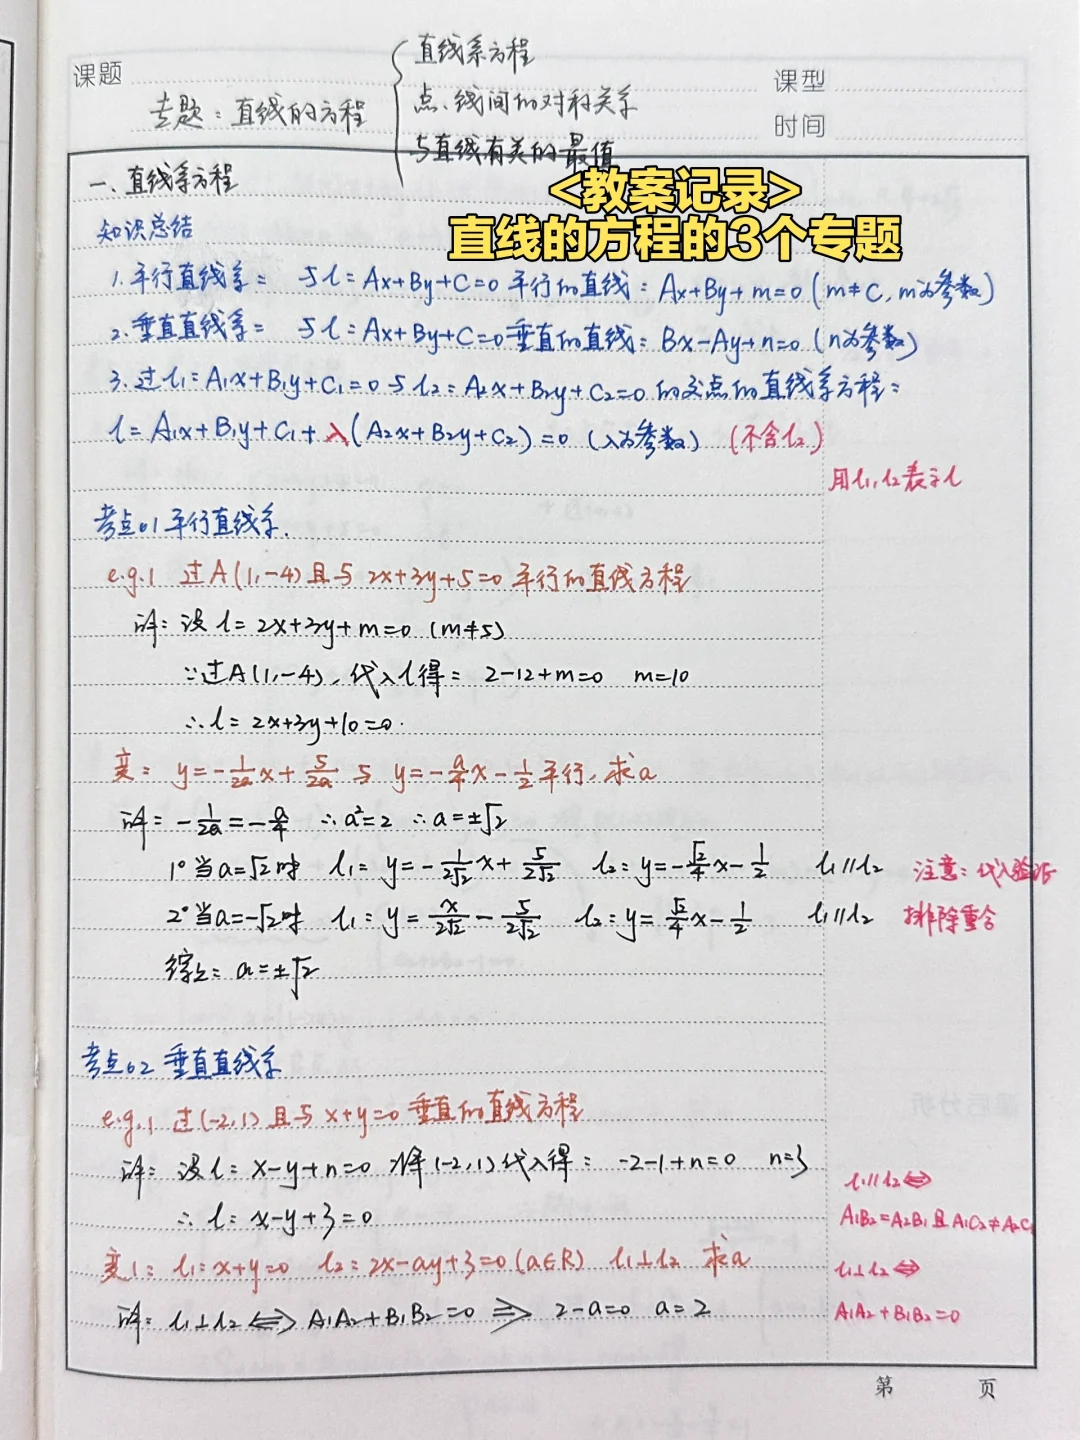 课题
专题：直线的方程
直线系方程
点、线间的对称关系
与直线有关的最值
课型
时间
<教案记录>
直线的方程的3个专题
一、直线系方程
知识总结
1.平行直线系： 与l：Ax+By+C=0平行的直线：Ax+By+m=0(m≠C,m为参数)
2.垂直直线系： 与l：Ax+By+C=0垂直的直线：Bx-Ay+n=0(n为参数)
3.过l₁：A₁x+B₁y+C₁=0与l₂：A₂x+B₂y+C₂=0的交点的直线系方程：
l：A₁x+B₁y+C₁+λ(A₂x+B₂y+C₂)=0 (λ为参数) (不含l₂)
用l₁,l₂表示l
考点01平行直线系.
e.g.1 过A(1,-4)且与2x+3y+5=0平行的直线方程
解：设l：2x+3y+m=0 (m≠5)
∵过A(1,-4),代入l得：2-12+m=0 m=10
∴l：2x+3y+10=0.
变：y=-1/2a x+5/2a 与 y=-a/4 x-1/2平行,求a
解：-1/2a=-a/4 ∴a²=2 ∴a=±√2
1°当a=√2时 l₁：y=-1/2√2 x+5/2√2 l₂：y=-√2/4 x-1/2 l₁∥l₂
注意：代入验证
2°当a=-√2时 l₁：y=x/2√2-5/2√2 l₂：y=√2/4 x-1/2 l₁∥l₂
排除重合
综上：a=±√2
考点02 垂直直线系
e.g.1 过(-2,1)且与x+y=0垂直的直线方程
解：设l：x-y+n=0 将(-2,1)代入得：-2-1+n=0 n=3
∴l：x-y+3=0
l₁∥l₂⇔
A₁B₂=A₂B₁且A₁C₂≠A₂C₁
变1：l₁：x+y=0 l₂：2x-ay+3=0(a∈R) l₁⊥l₂ 求a
解：l₁⊥l₂⇔A₁A₂+B₁B₂=0⇒2-a=0 a=2
l₁⊥l₂⇔
A₁A₂+B₁B₂=0
第 页